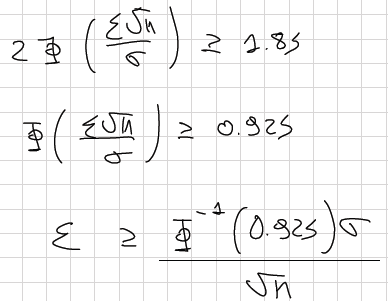 2 Φ(ε√n/σ) ≥ 1.85
Φ(ε√n/σ) ≥ 0.925
ε ≥ Φ⁻¹(0.925)σ/√n